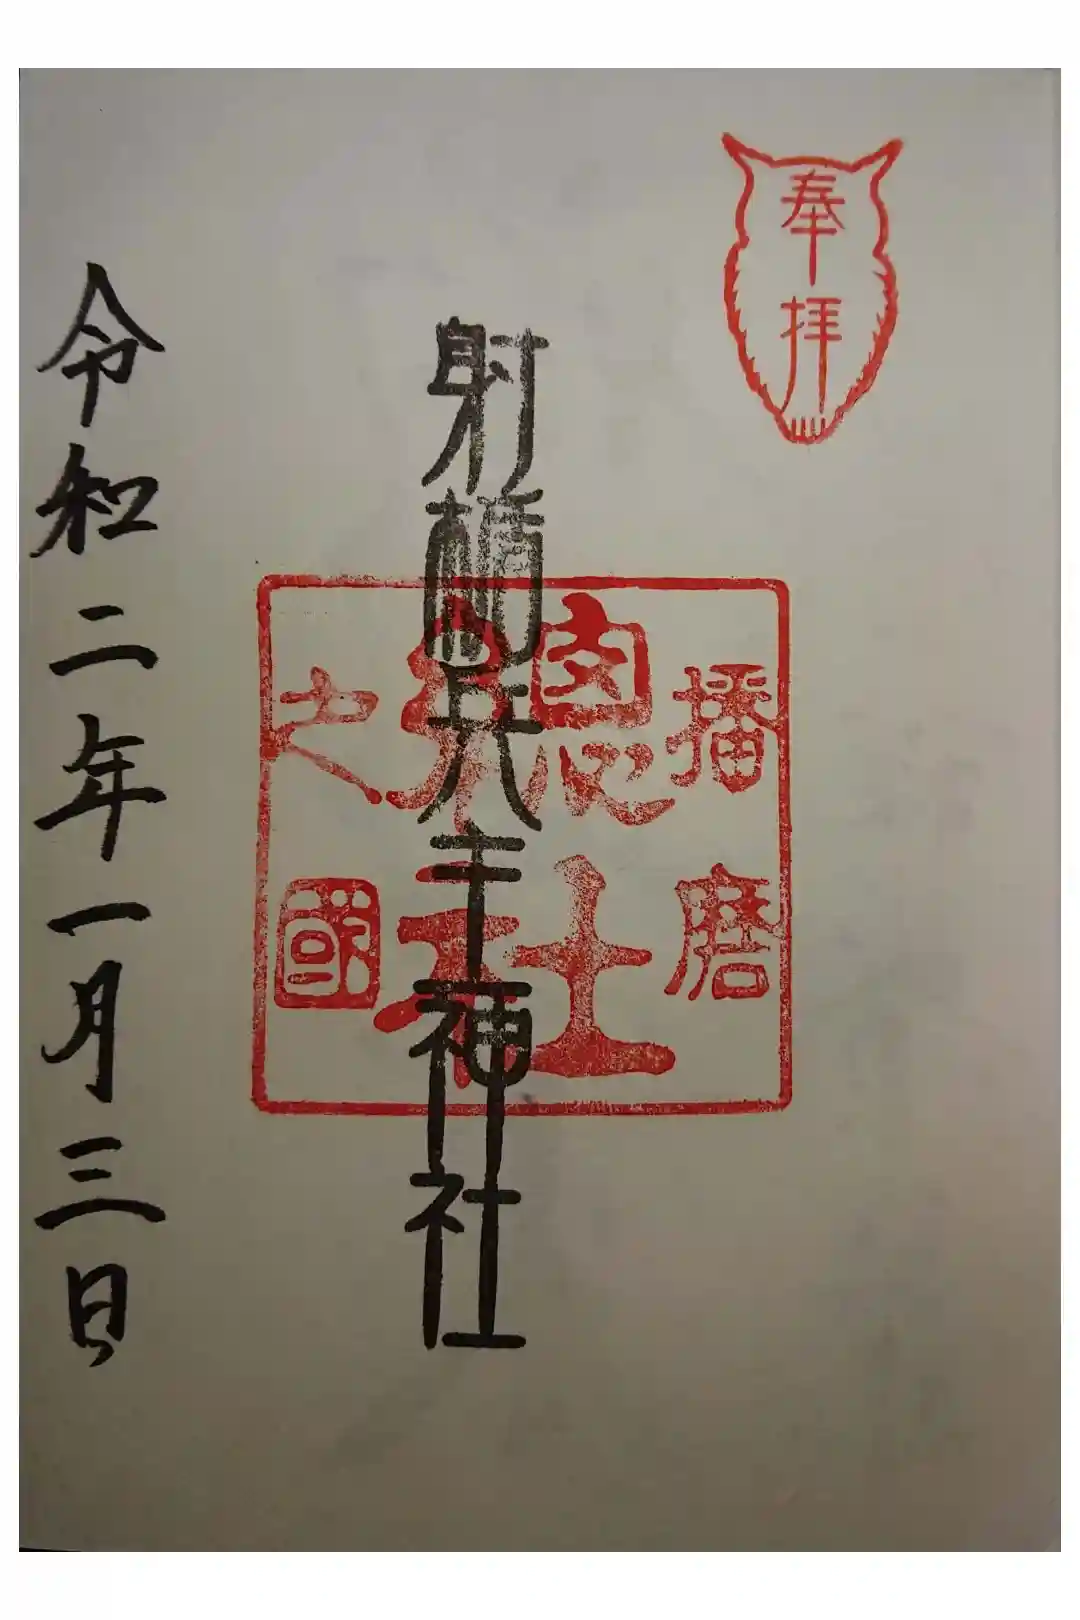 奉拝
播磨
総社
之國
射楯兵主神社
令和二年一月三日